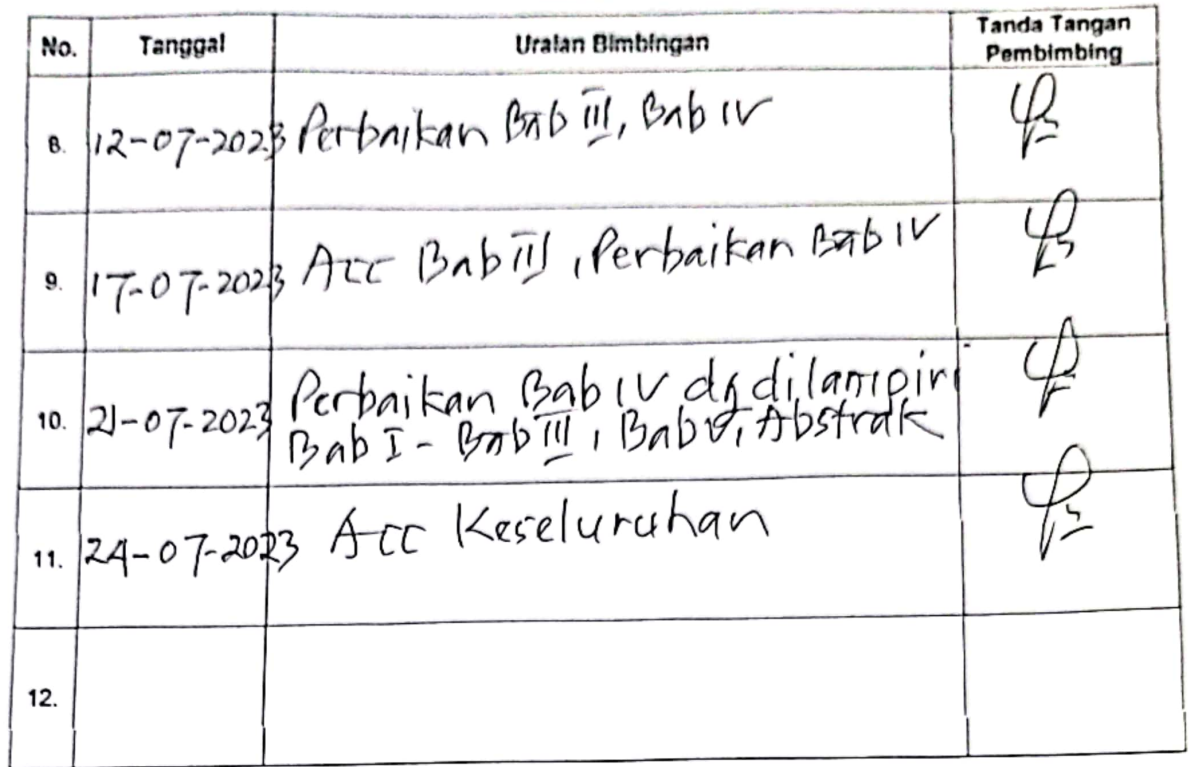 No. Tanggal Uraian Bimbingan Tanda Tangan Pembimbing
8. 12-07-2023 Perbaikan Bab III, Bab IV
9. 17-07-2023 Acc Bab III, Perbaikan Bab IV
10. 21-07-2023 Perbaikan Bab IV dg dilampiri
Bab I - Bab III, Bab V, Abstrak
11. 24-07-2023 Acc Keseluruhan
12.